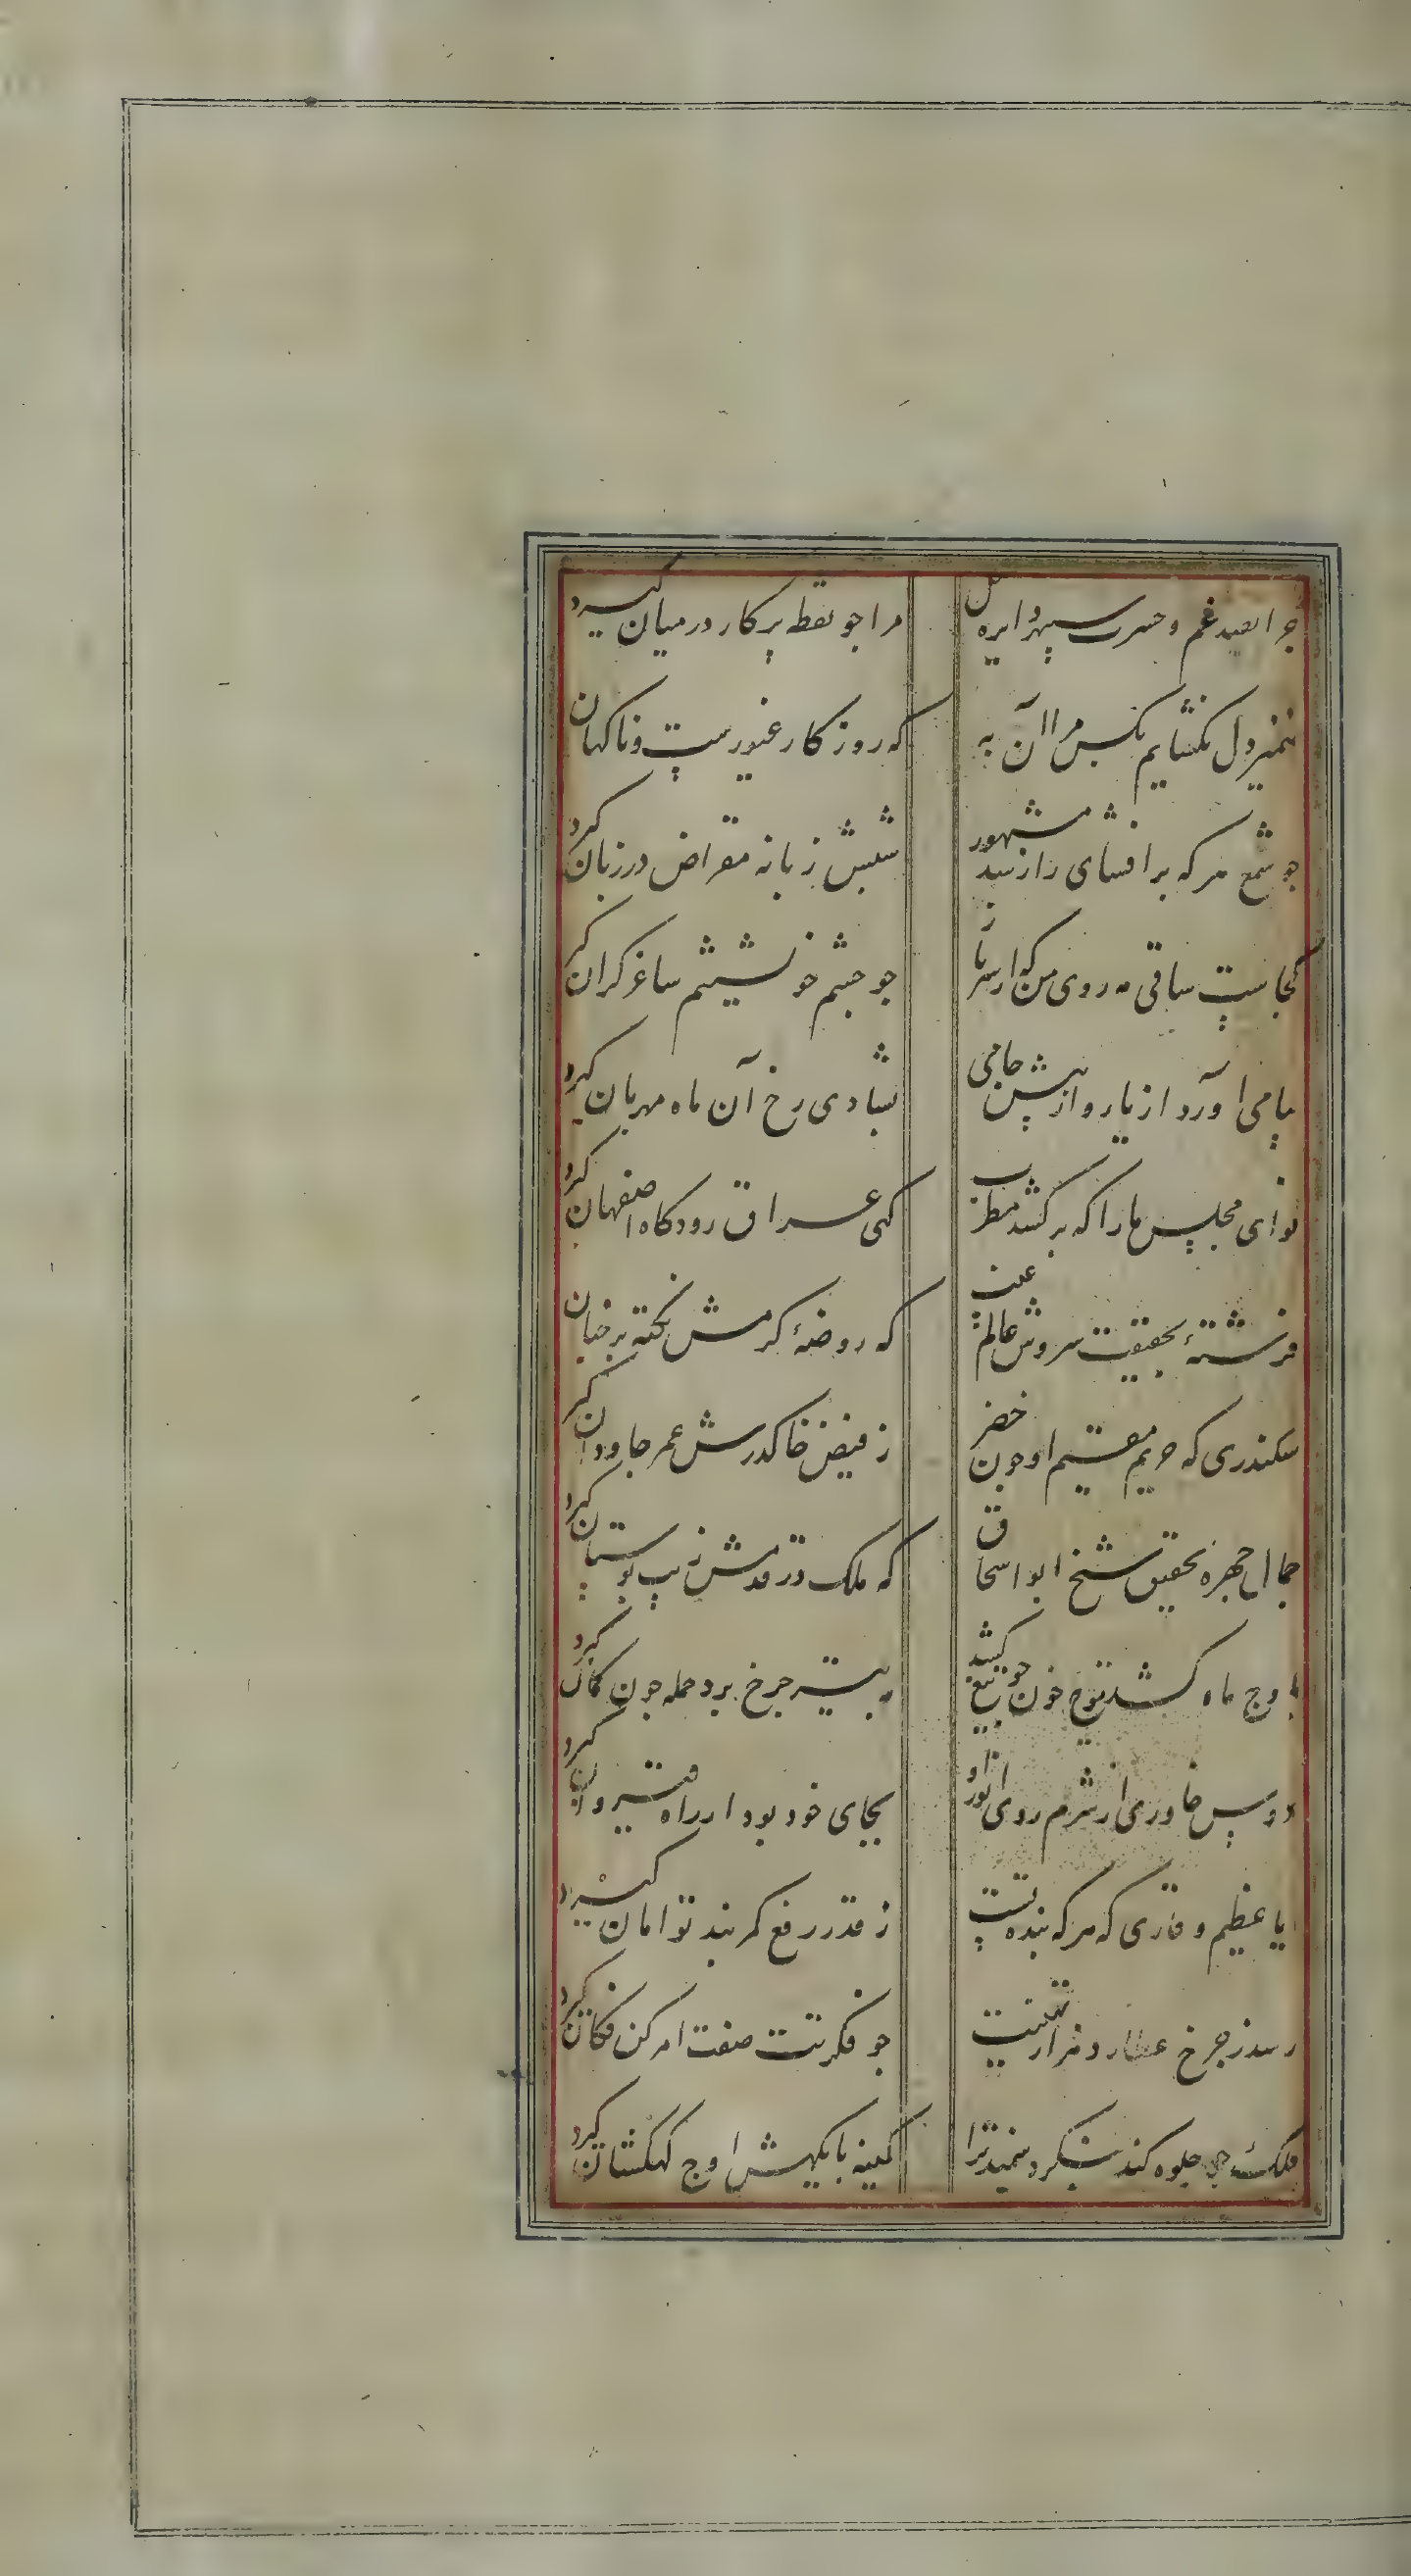 چرا بصید غم و حسرت سپهر دایره شکل
مرا چو نقطه پرکار در میان گیرد
ضمیر دل نگشایم بکس مرا آن به
که روزکار غیورست و ناکهان گیرد
چو شمع هر که برافشای راز شد مشهور
بسش زبانه مقراض در زبان گیرد
کجاست ساقی مه روی من که از سر ناز
چو چشم خوشیشم ساغر کران گیرد
پیامی آورد از یار و از پیش جامی
بشادی رخ آن ماه مهربان گیرد
نوای مجلس ما را که برکشد مطرب
کهی عراق رود کاه اصفهان گیرد
فرشتهٔ بحقیقت سروش عالم غیب
که روضهٔ کرمش نکته بر جنان گیرد
سکندری که حریم مقیم او چون خضر
ز فیض خاکدرش عمر جاودان گیرد
جمال چهره تحقیق شیخ ابواسحاق
که ملک در قدمش زیب بوستان گیرد
باوج ماه کشد موج خون چو تیغ کشد
به تیر چرخ برد حمله چون کمان گیرد
عروس خاوری از شرم روی انور او
بجای خود بود ار راه قیروان گیرد
ایا عظیم وقاری که هر که بنده تست
ز قدر رفع کمربند توامان گیرد
رسد ز چرخ عطارد هزار تهنیت
چو فکرتت صفت امر کن فکان گیرد
فلک چو جلوه کنان بنکرد سمند ترا
کمینه پایکهش اوج کهکشان گیرد